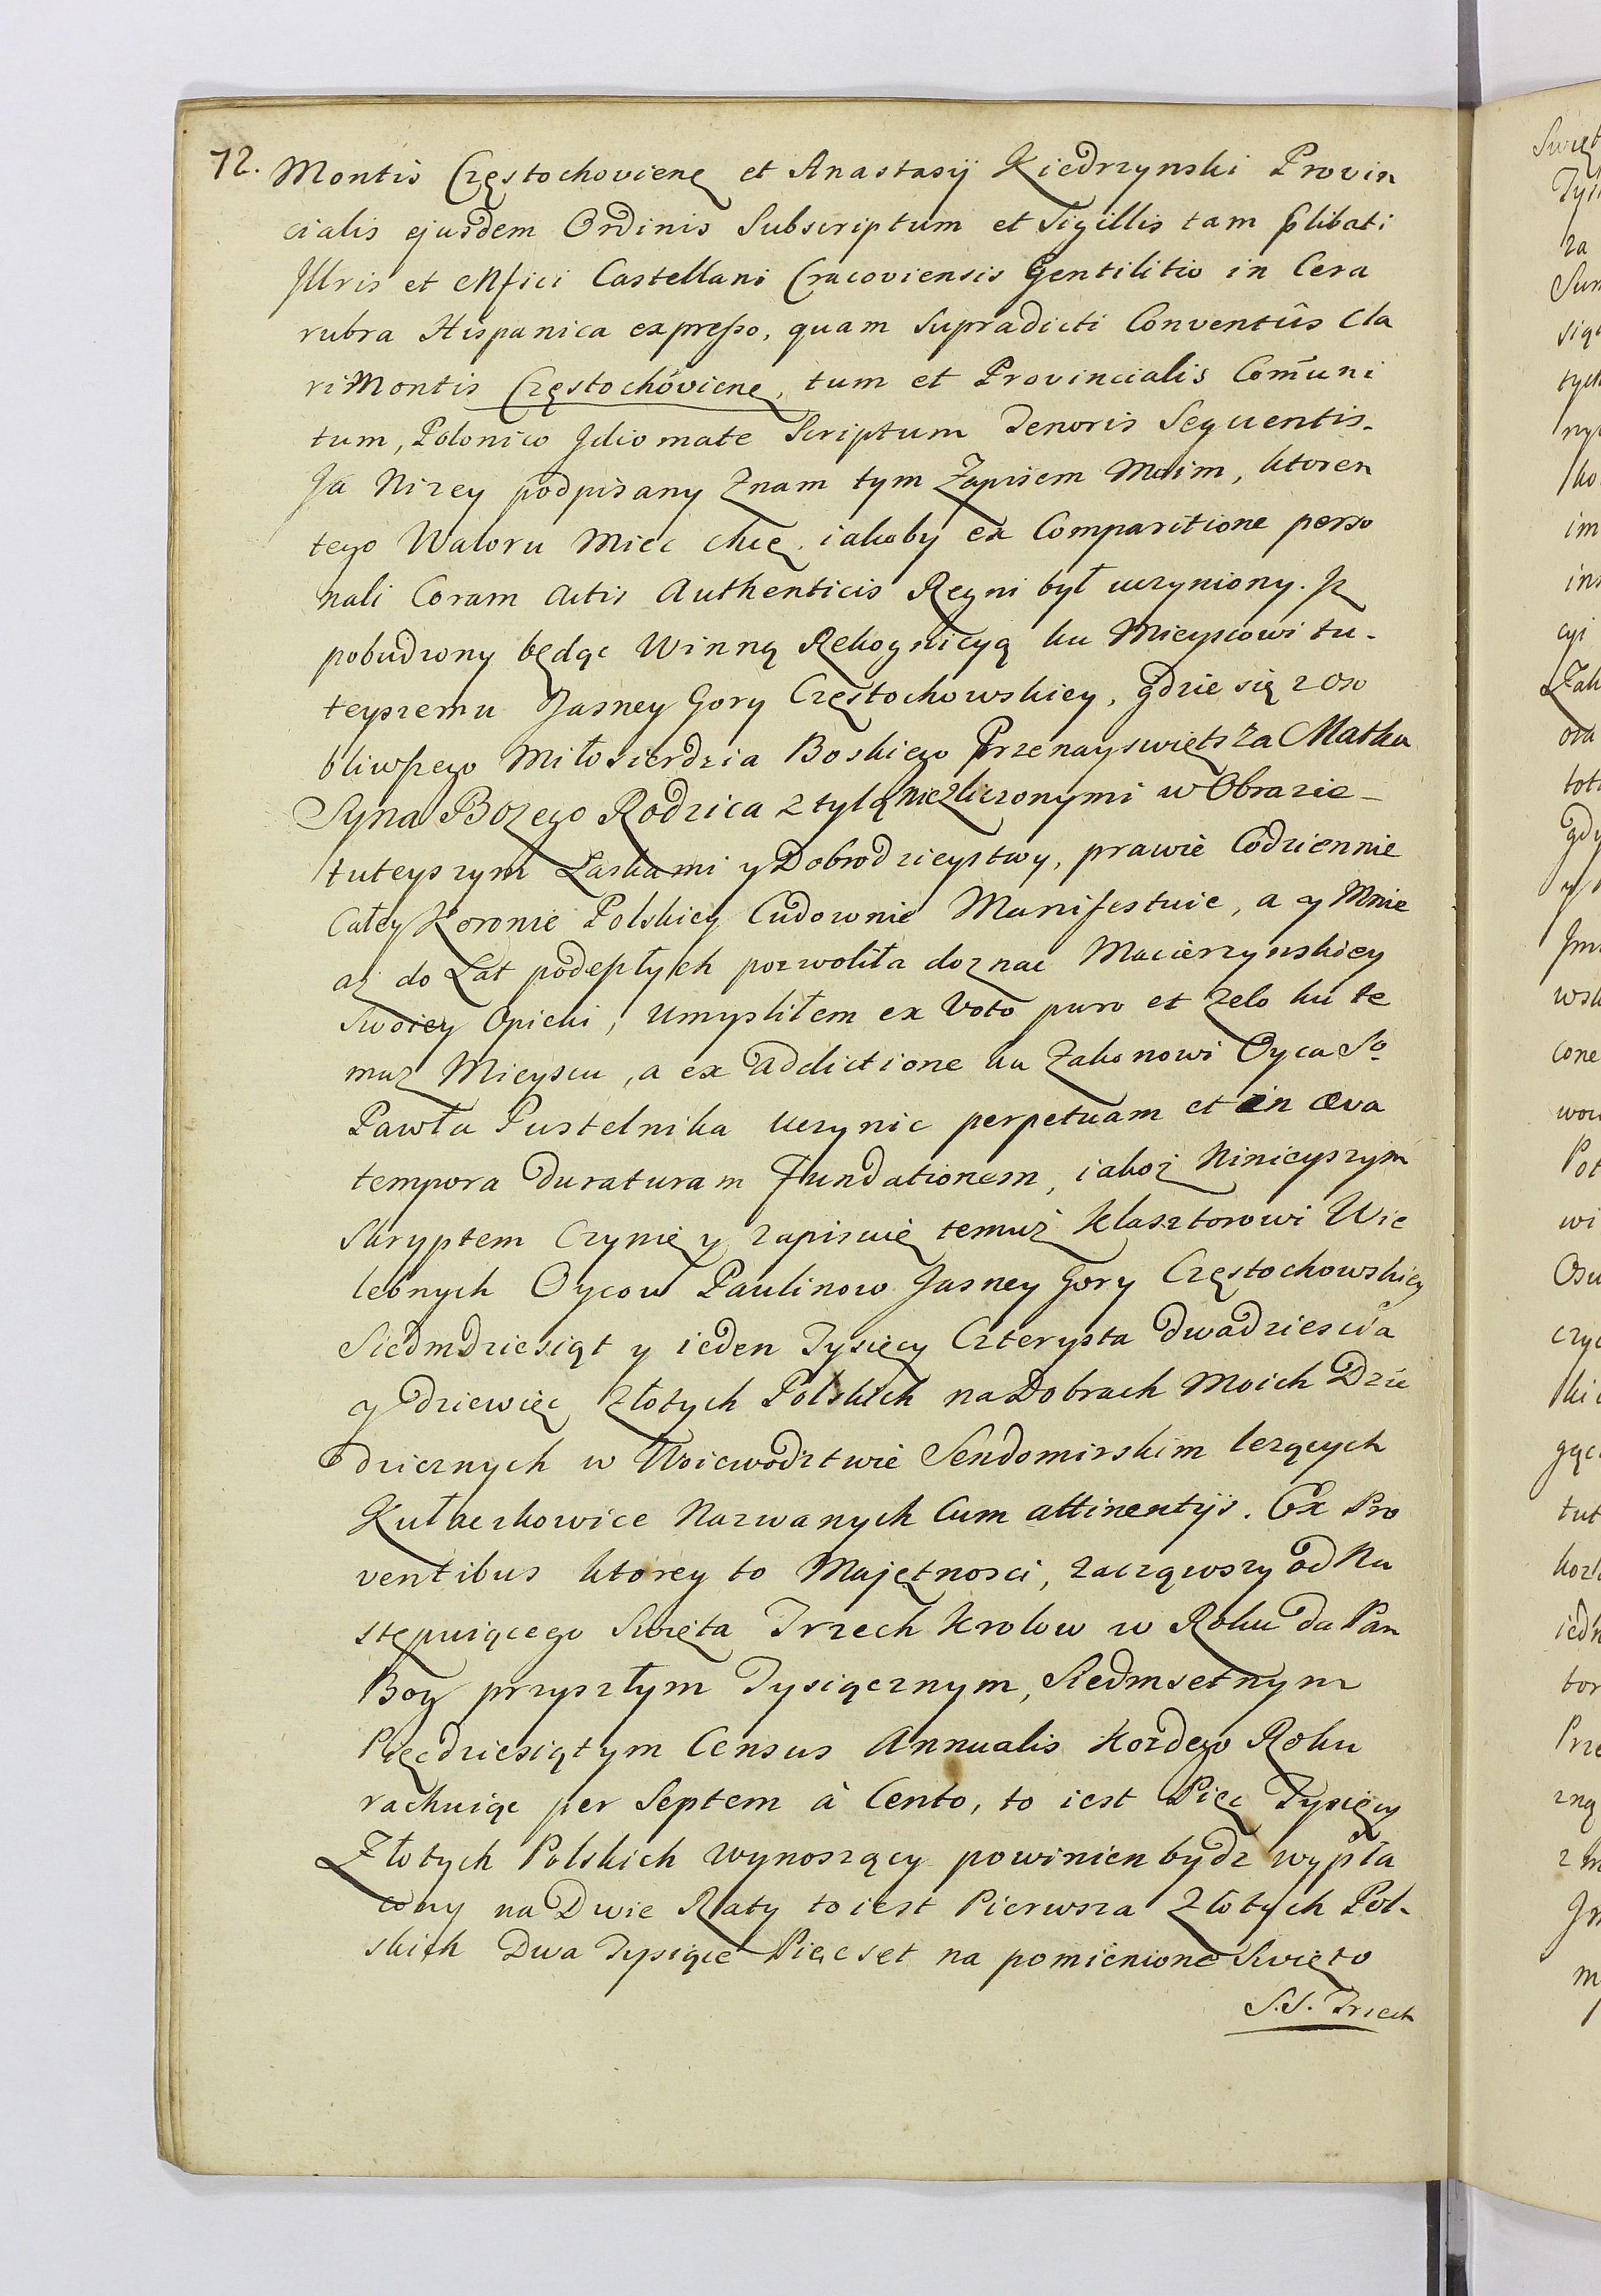 72. Montis Częstochovienę et Anastasÿ Kiedrzynski Provin
cialis ejusdem Ordinis Subscriptum et Sigillis tam p̄libati
Jllris et Mfici Castellani Cracoviensis Gentilitio in Cera
rubra Hispanica expresso, quam Supradicti Conventûs Cla
ri Montis Częstochovienę, tum et Provincialis Com̄uni
tum, Polonico Jdiomate Scriptum Tenoris Sequentis.
Ja Nizey podpisany Znam tym Zapisem Moim, ktoren
tego Waloru Miec chcę, iakoby ex Comparitione perso
nali Coram Actis Authenticis Regni był uczyniony. Jz
pobudzony będąc Winną Rekognicyą ku Mieyscowi tu-
teyszemu Jasney Gory Częstochowskiey, gdzie się z oso
bliwszego Miłosierdzia Boskiego Przenayswiętsza Matka
Syna Bozego Rodzica z tylą niezliczonymi w Obrazie
tuteyszym Łaskami y Dobrodzieystwy, prawie Codziennie
Całey Koronie Polskiey Cudownie Manifestuie, a y Mnie
az do Lat podeptłych pozwoliła doznac Macierzynskiey
Swoiey Opieki, Umysliłem ex Voto puro et zelo ku te
muz Mieyscu, a ex addictione ku Zakonowi Oyca So
Pawła Pustelnika uczynic perpetuam et in æva
tempora duraturam Fundationem, iakoż Ninieyszym
Skryptem Czynię y zapisuię temuż Klasztorowi Wie
lebnych Oycow Paulinow Jasney Gory Częstochowskiey
Siedmdziesiąt y ieden Tysięcy Czterysta dwadziescia
y dziewięc Złotych Polskich na Dobrach Moich Dzie
dzicznych w Woiewodztwie Sendomirskim lezących
Kułaczkowice Nazwanych Cum attinentÿs. Ex Pro
ventibus ktorey to Majętnosci, zacząwszy od Na
stępuiącego Swięta Trzech Krolow w Roku da Pan
Bog przyszłym Tysiącznym, Siedmsetnym
Pięcdziesiątym Census Annualis Kozdego Roku
rachuiąc per Septem à Cento, to iest Pięc Tysięcy
Złotych Polskich wynoszący powinien bydz wypła
cony na Dwie Raty to iest Pierwsza Złotych Pol-
skich Dwa Tysiące Piącset na pomienione Swięto
S.S. Trzech